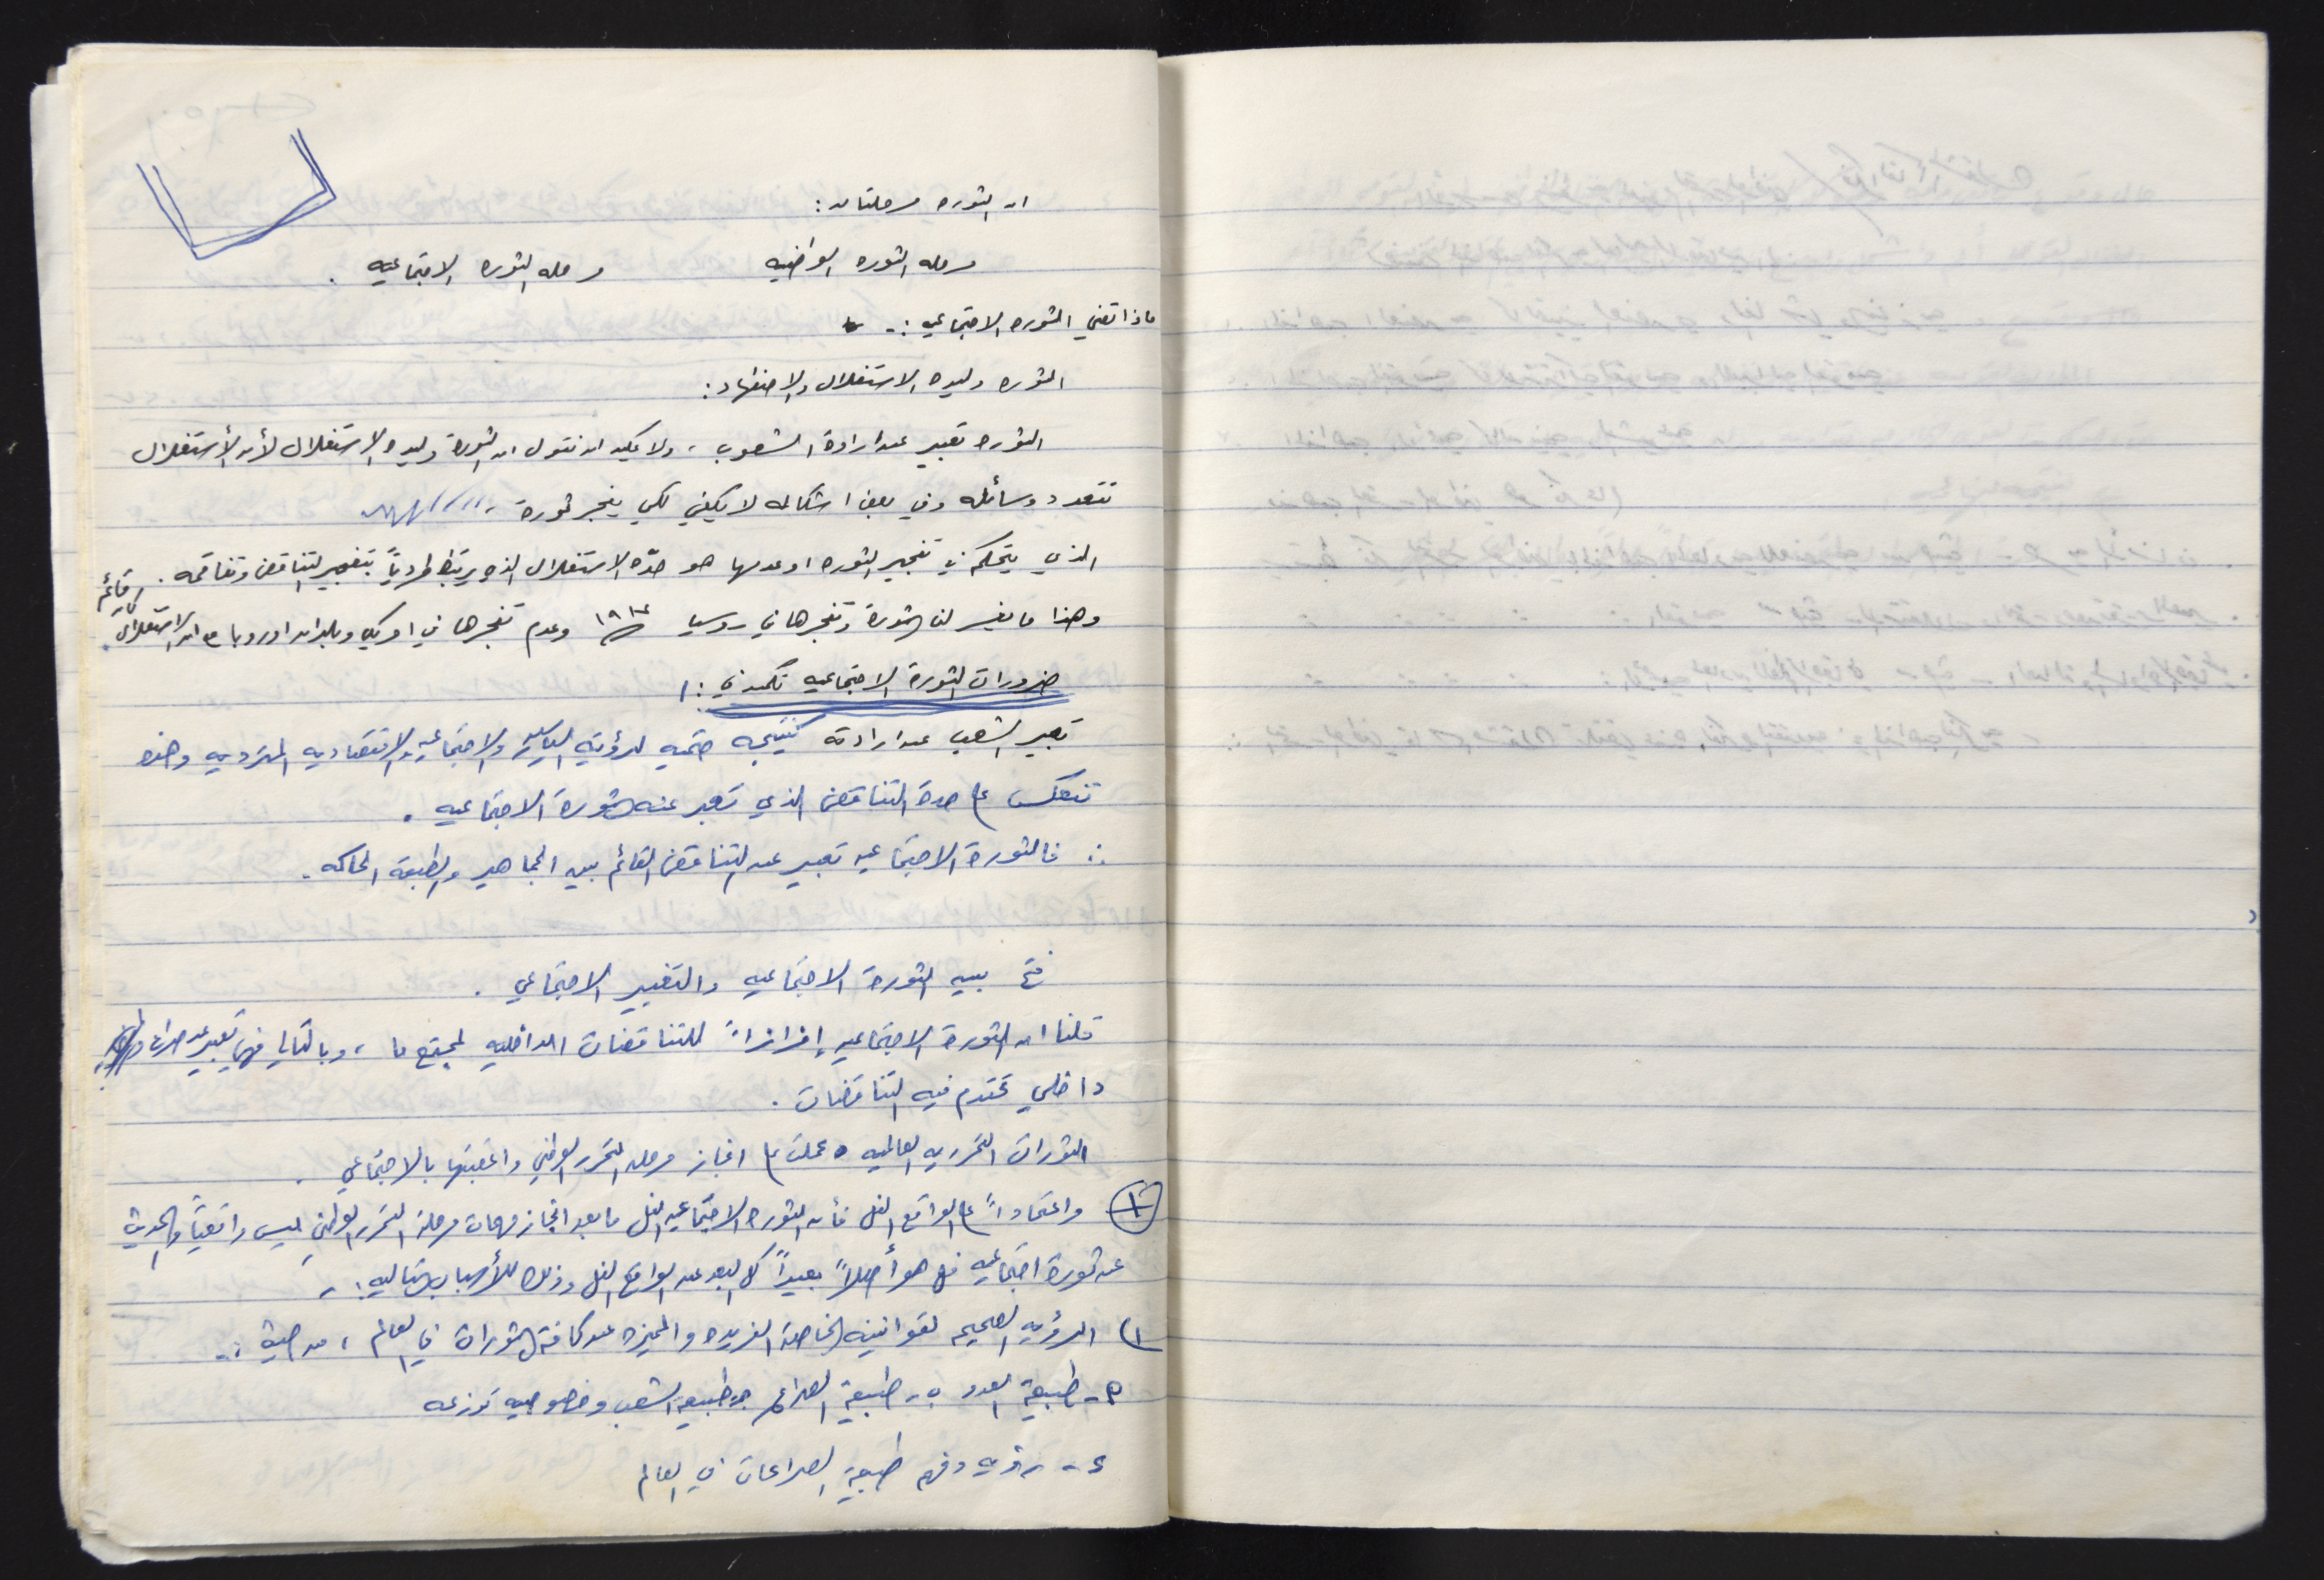 ان الثوره مرحلتان :
مرحله الثوره الوطنيه مرحله الثوره الاجتماعيه .
ماذا تعني الثوره الاجتماعيه :-
الثوره وليده الاستغلال والاضطهاد :
الثوره تعبير عن ارادة الشعوب ، ولا يمكن ان نقول ان الثورة وليده الاستغلال لأن الأستغلال
تتعدد وسائله وفي بعض اشكاله لا يكفي لكي يفجر ثورة
الذي يتحكم في تفجير الثوره او عدمها هو حدّه الاستغلال الذي يرتبط طردياً بتفجير التناقض وتفاقمه .
وهذا ما يفسر لنا الثورة وتفجرها في روسيا ١٩١٧ وعدم تفجرها في امريكا وبلدان اوروبا ان الاستغلال قائم .
ضرورات الثورة الاجتماعيه تكمن في :
تعبير الشعب عن ارادته نتيجه حتميه لرؤيته السياسيه والاجتماعيه والاقتصاديه المترديه وهذه
تنعكس ع حدة التناقض الذي تعبر عنه الثورة الاجتماعيه .
∴ فالثورة الاجتماعيه تعبير عن التناقض القائم بين الجماهير والطبقة الحاكمه .
بين الثورة الاجتماعيه والتغيير الاجتماعي .
قلنا ان الثورة الاجتماعيه إفرازاً للتناقضات الداخليه لمجتمع ما ، وبالتالي فهي تعبير عن صراع
داخلي تحتدم فيه التناقضات .
الثورات التحرريه العالميه عملت ع انجاز مرحله التحرر الوطني واعقبتها بالاجتماعي .
١ واعتماداً ع الواقع الفل فأن الثوره الاجتماعيه الفل ما بعد انجاز مهمات مرحلة التحرر الوطني ليس واقعياً والحديث
عن ثورة اجتماعيه فل هو أصلاً بعيداً كل البعد عن الواقع الفل وذلك للأسباب التاليه :-
١) الرؤيه الصحيحه لقوانينه الخاصة الفريده والمميزه عن كافة الثورات في العالم ، من حيث :-
أ- طبيعة العدو ب- طبيعة الصراع ج- طبيعة الشعب وخصوصيه توزعه
٢- رؤيه وفهم طبيعة الصراعات في العالم